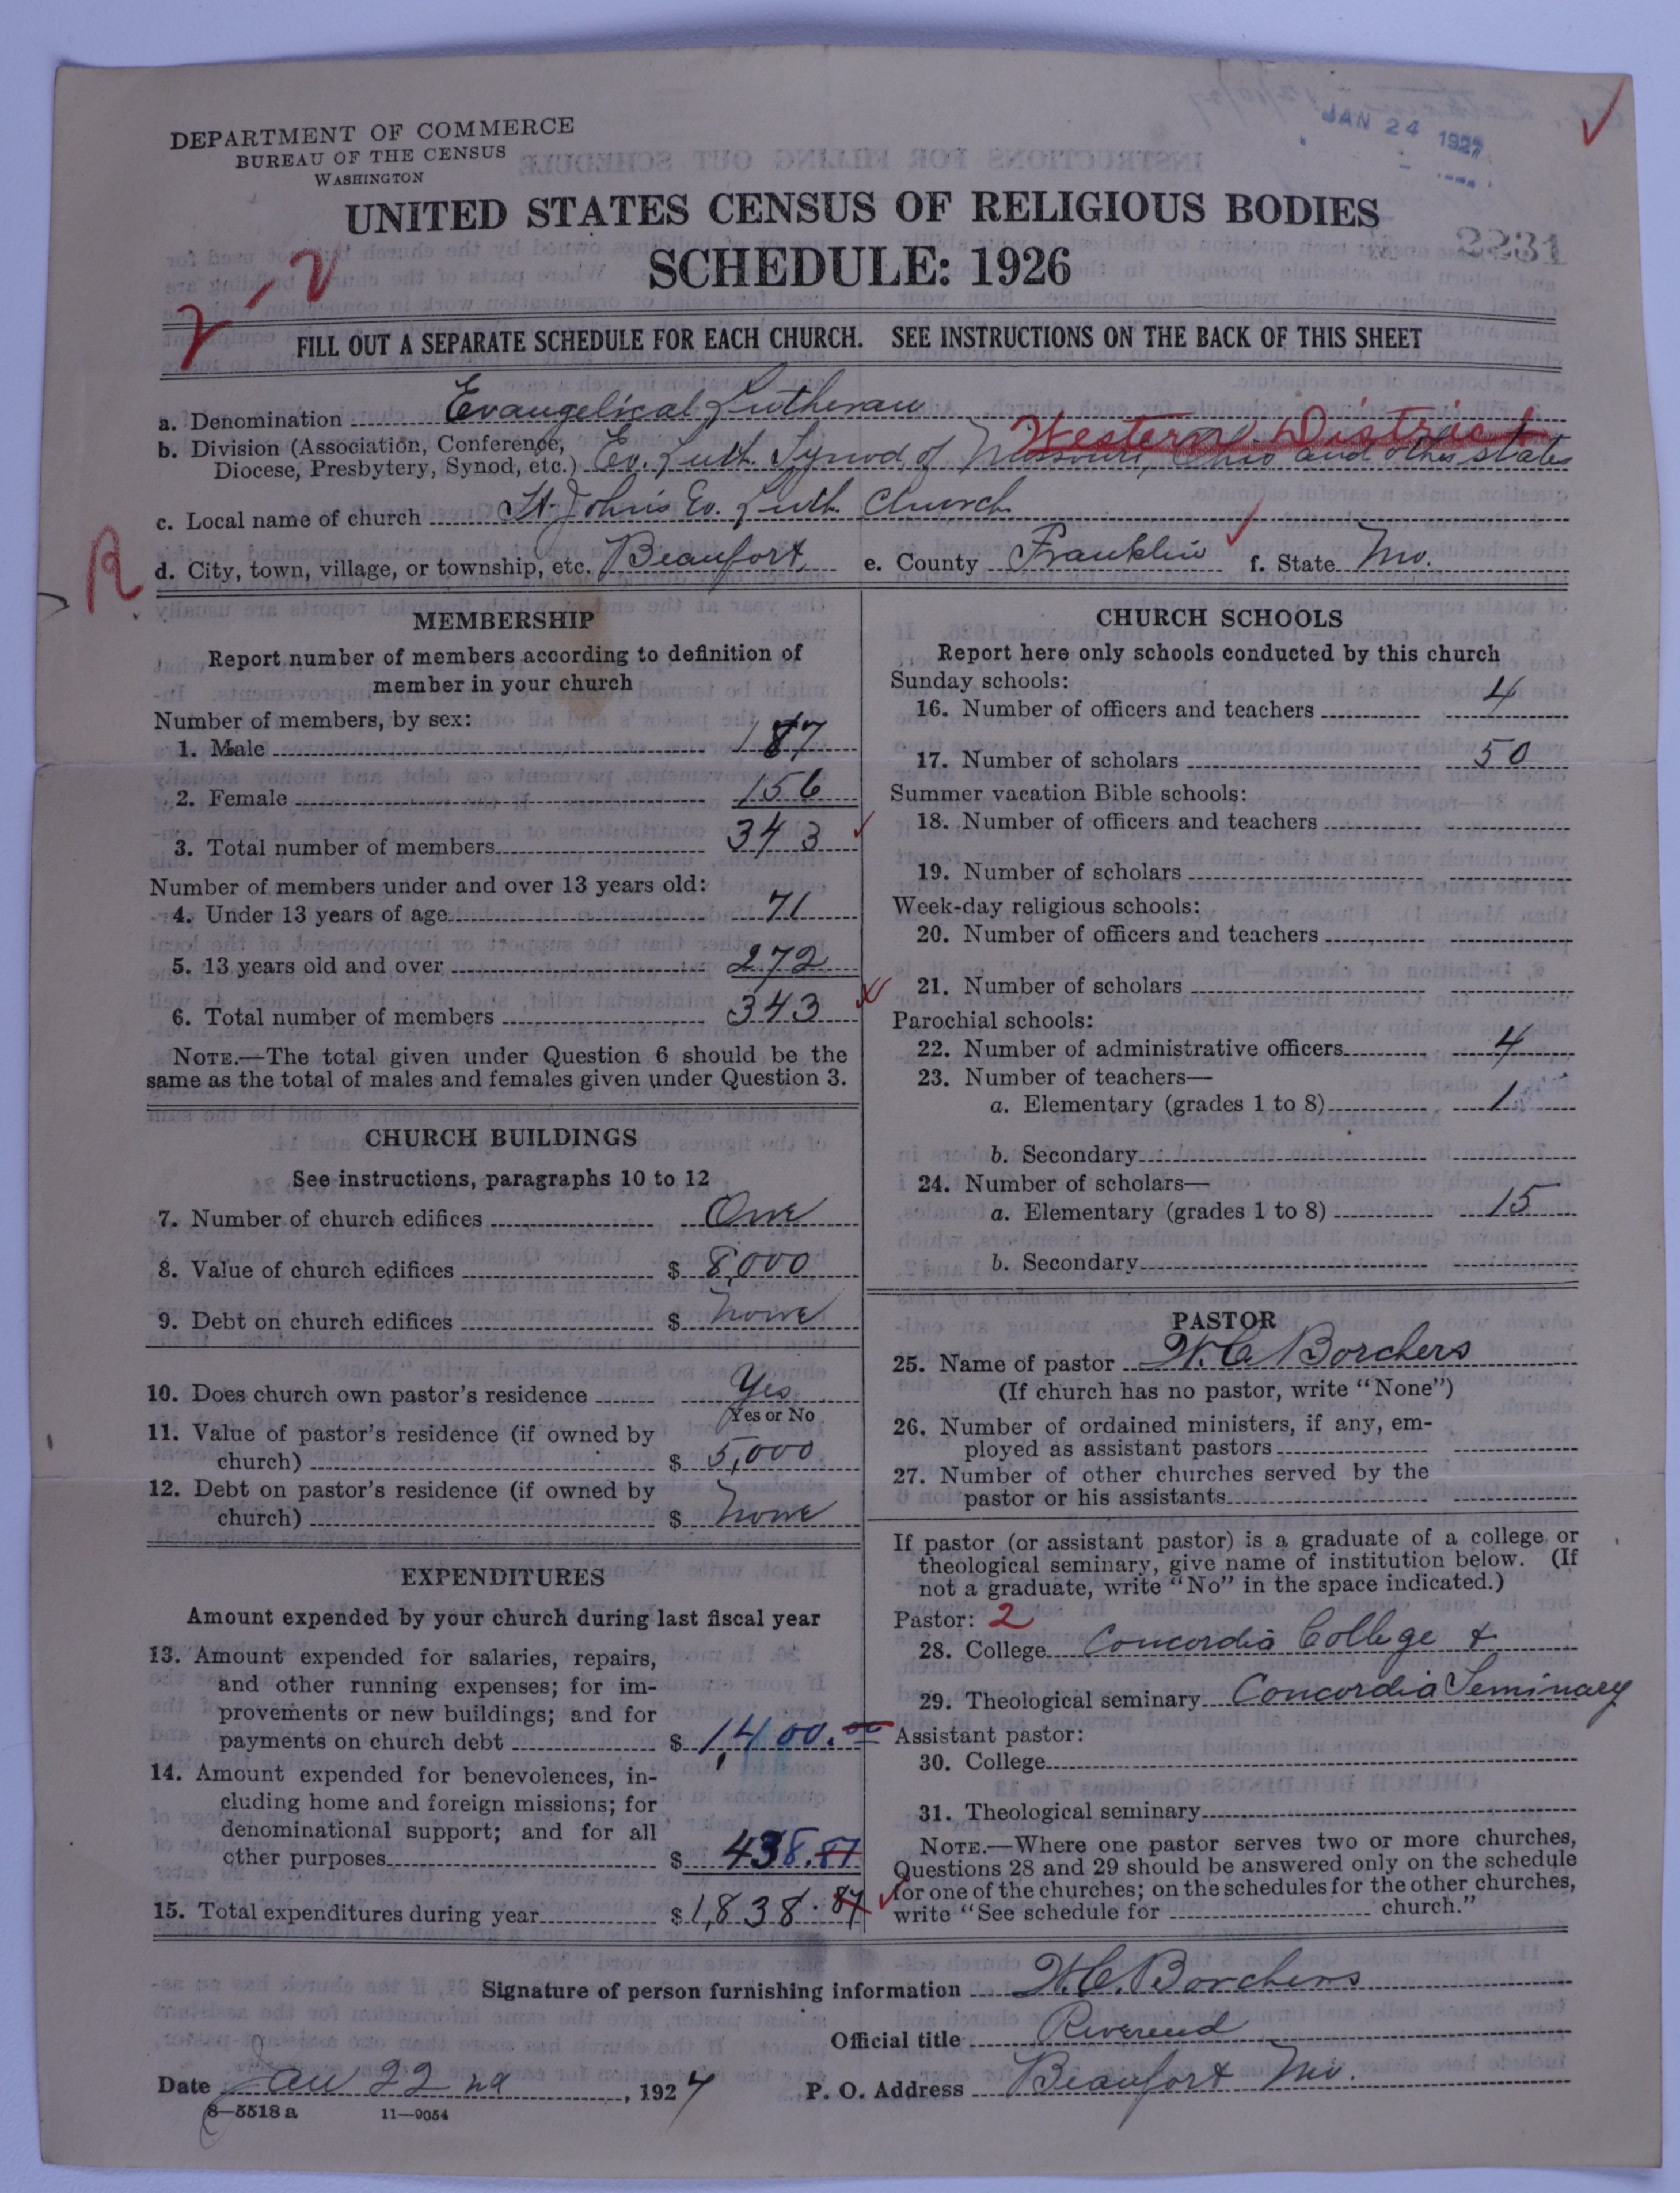 DEPARTMENT OF COMMERCE
BUREAU OF THE CENSUS
WASHINGTON
JAN 24 1927
UNITED STATES CENSUS OF RELIGIOUS BODIES
SCHEDULE: 1926
2231
2-2
FILL OUT A SEPARATE SCHEDULE FOR EACH CHURCH. SEE INSTRUCTIONS ON THE BACK OF THIS SHEET
a. Denomination Evangelical Lutheran
Western District
b. Division (Association, Conference,
Diocese, Presbytery, Synod, etc.) Ev. Luth. Synod of Missouri, Ohio and other states
c. Local name of church St. John's Ev. Luth. Church
R
d. City, town, village, or township, etc. Beaufort, e. County Franklin f. State Mo.
MEMBERSHIP
Report number of members according to definition of
member in your church
Number of members, by sex:
1. Male 187
2. Female 156
3. Total number of members 343
Number of members under and over 13 years old:
4. Under 13 years of age 71
5. 13 years old and over 272
6. Total number of members 343
NOTE.—The total given under Question 6 should be the
same as the total of males and females given under Question 3.
CHURCH BUILDINGS
See instructions, paragraphs 10 to 12
7. Number of church edifices One
8. Value of church edifices $ 8,000
9. Debt on church edifices $ None
10. Does church own pastor's residence Yes
Yes or No
11. Value of pastor's residence (if owned by
church) $ 5,000
12. Debt on pastor's residence (if owned by
church) $ None
EXPENDITURES
Amount expended by your church during last fiscal year
13. Amount expended for salaries, repairs,
and other running expenses; for im-
provements or new buildings; and for
payments on church debt $ 1,400.00
14. Amount expended for benevolences, in-
cluding home and foreign missions; for
denominational support; and for all
other purposes $ 438.87
15. Total expenditures during year $ 1,838.87
CHURCH SCHOOLS
Report here only schools conducted by this church
Sunday schools:
16. Number of officers and teachers 4
17. Number of scholars 50
Summer vacation Bible schools:
18. Number of officers and teachers
19. Number of scholars
Week-day religious schools:
20. Number of officers and teachers
21. Number of scholars
Parochial schools:
22. Number of administrative officers 4
23. Number of teachers—
a. Elementary (grades 1 to 8) 1
b. Secondary
24. Number of scholars—
a. Elementary (grades 1 to 8) 15
b. Secondary
PASTOR
25. Name of pastor W. C. Borchers
(If church has no pastor, write "None")
26. Number of ordained ministers, if any, em-
ployed as assistant pastors
27. Number of other churches served by the
pastor or his assistants
If pastor (or assistant pastor) is a graduate of a college or
theological seminary, give name of institution below. (If
not a graduate, write "No" in the space indicated.)
Pastor: 2
28. College Concordia College &
29. Theological seminary Concordia Seminary
Assistant pastor:
30. College
31. Theological seminary
NOTE.—Where one pastor serves two or more churches,
Questions 28 and 29 should be answered only on the schedule
for one of the churches; on the schedules for the other churches,
write "See schedule for church."
Signature of person furnishing information W. C. Borchers
Official title Reverend
Date Jan 22nd, 1927 P. O. Address Beaufort Mo.
8—5518a 11—9054